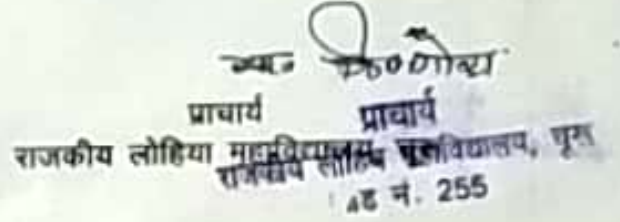 प्राचार्य प्राचार्य
राजकीय लोहिया महाविद्यालय, चूरू
राजकीय लोहिया महाविद्यालय, चूरू
नं. 255